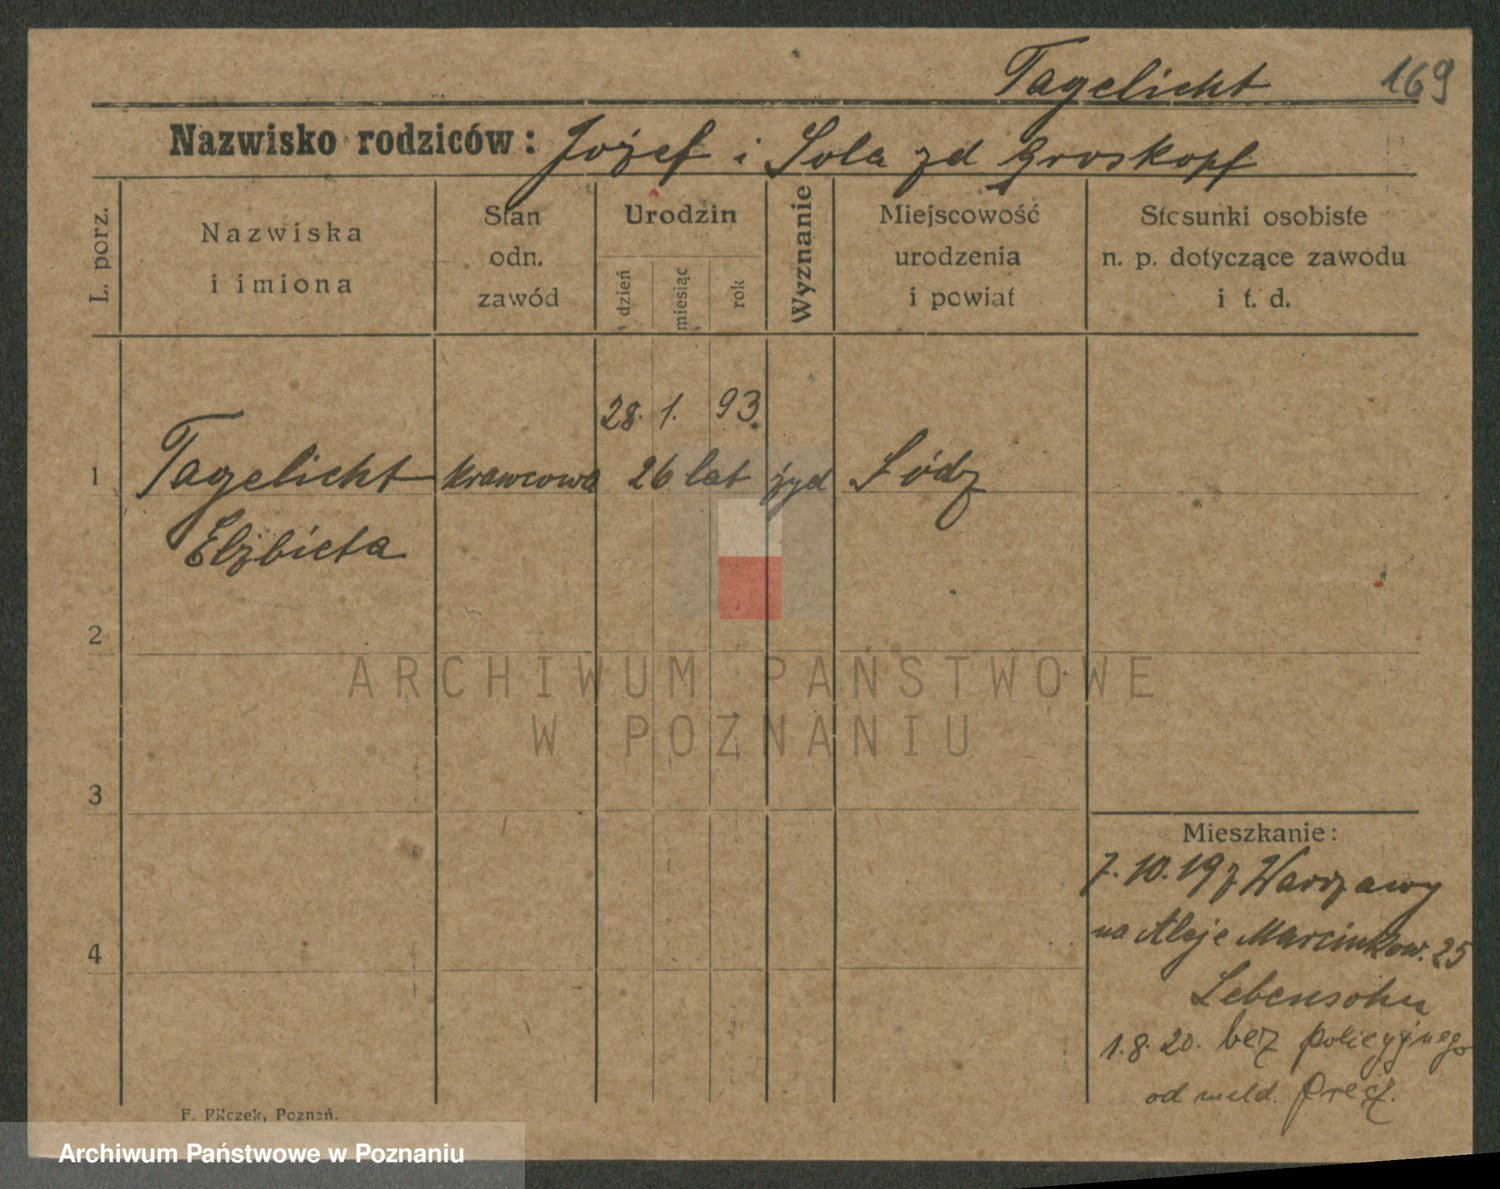 Tagelicht 169
Nazwisko rodziców: Józef i Sola zd Groskopf
L. porz.
Nazwiska
i imiona
Stan
odn.
zawód
Urodzin
dzień
miesiąc
rok
Wyznanie
Miejscowość
urodzenia
i powiat
Stosunki osobiste
n. p. dotyczące zawodu
i t. d.
28. 1. 93.
1 Tagelicht krawcowa 26 lat żyd Łódz
Elzbieta
2
ARCHIWUM PAŃSTWOWE
W POZNANIU
3
Mieszkanie:
7.10.19 z Warszawy
na Aleje Marcinkow. 25
4
Lebensohn
1.8.20. bez policyjnego
od meld.
F. Pilczek, Poznań.
Archiwum Państwowe w Poznaniu